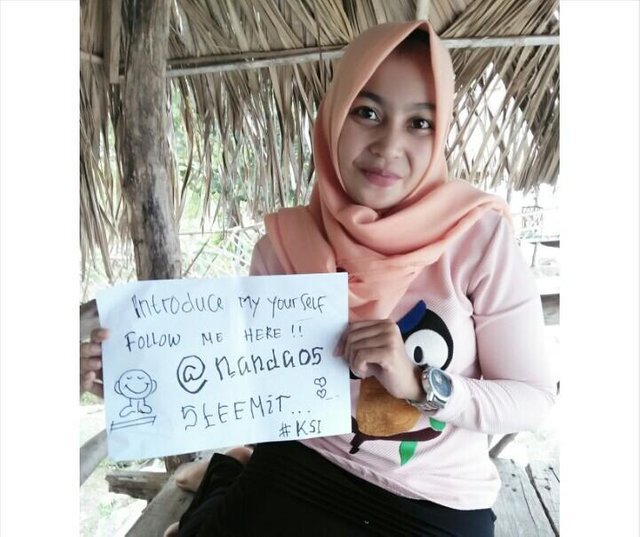 Introduce My YourSelf
FOLLOW ME HERE !!
@nanda05
StEEMiT...
#KSI